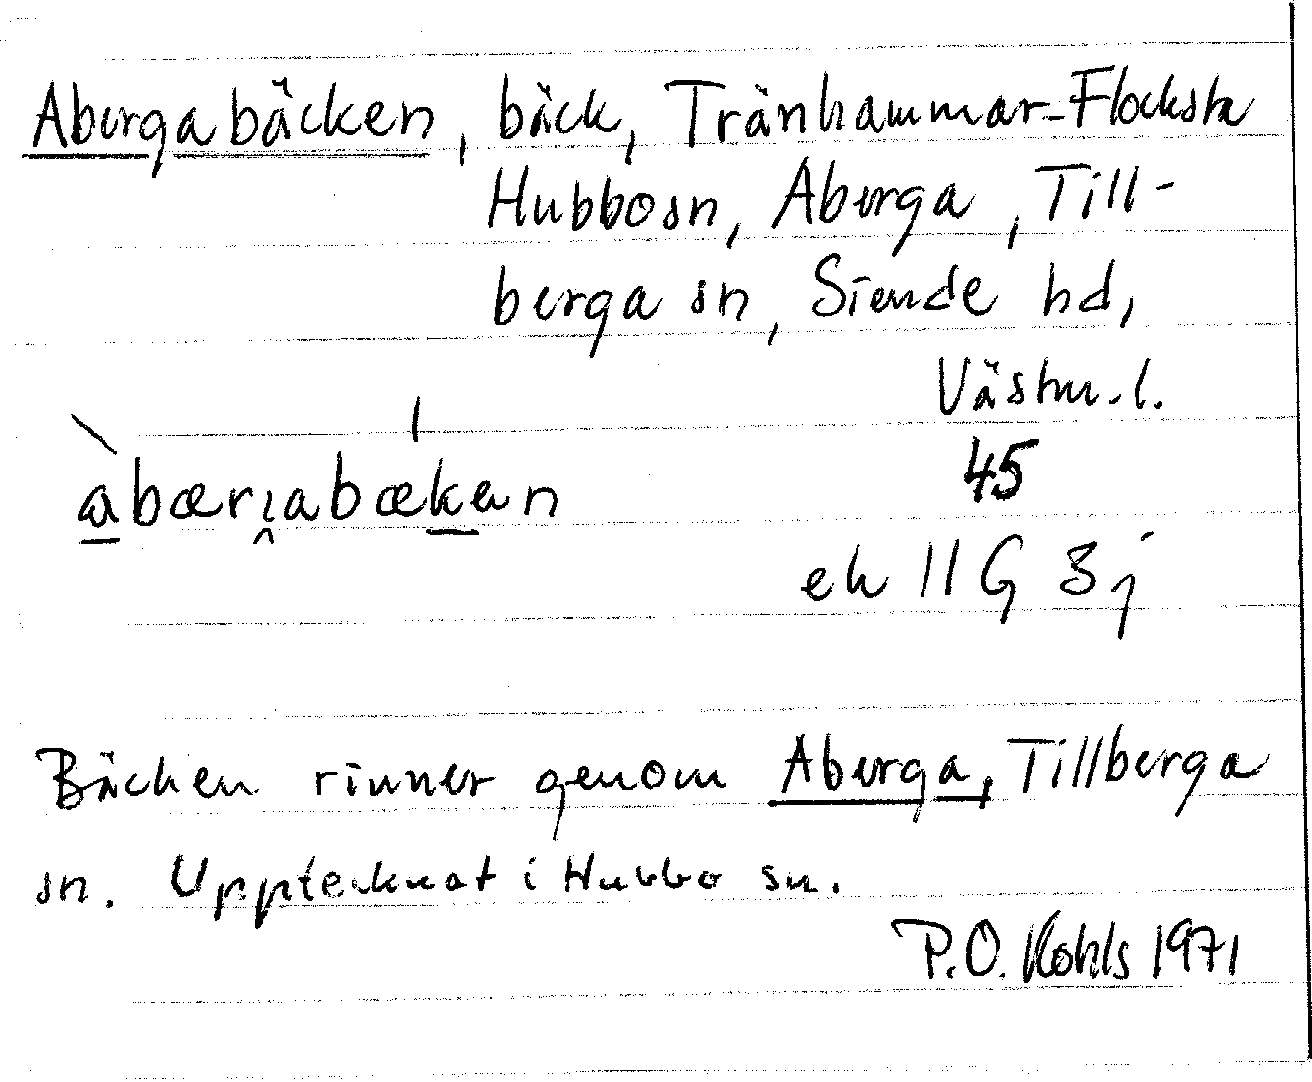 Abergabäcken, bäck, Tränhammar-Flocksta
Hubbo sn, Aberga, Till-
berga sn, Siende hd,
Västm. l.
àbærjabækan
45
ek 11 G 3 j
Bäcken rinner genom Aberga, Tillberga
sn. Upptecknat i Hubbo sn.
P.O. Kohls 1971